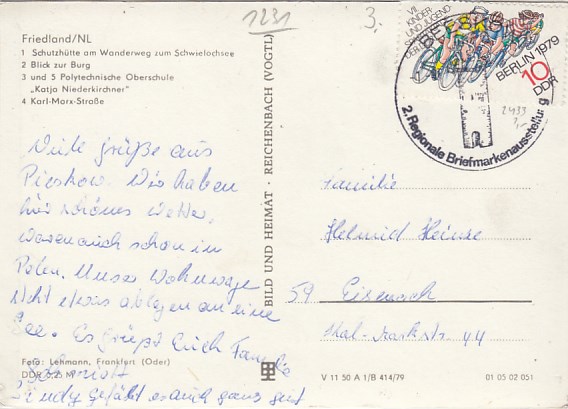 1231
3.
Friedland/NL
1 Schutzhütte am Wanderweg zum Schwielochsee
2 Blick zur Burg
3 und 5 Polytechnische Oberschule
„Katja Niederkirchner"
4 Karl-Marx-Straße
Viele Grüße aus
Pieskow. Wir haben
hier schönes Wetter,
waren auch schon in
Polen. Unser Wohnwage
steht etwas ablegen an eine
See. Es grüßt Euch Familie
Foto: Lehmann, Frankfurt (Oder)
DDR 0,25 M
gefällt es auch ganz gut
BILD UND HEIMAT · REICHENBACH (VOGTL)
VII.
KINDER
UND JUGEND
DER
BERLIN 1979
10
DDR
BEESKOW
2. Regionale Briefmarkenausstellung
2433
Familie
Helmut Heinze
59 Eisenach
Str. 44
V 11 50 A 1/B 414/79
01 05 02 051